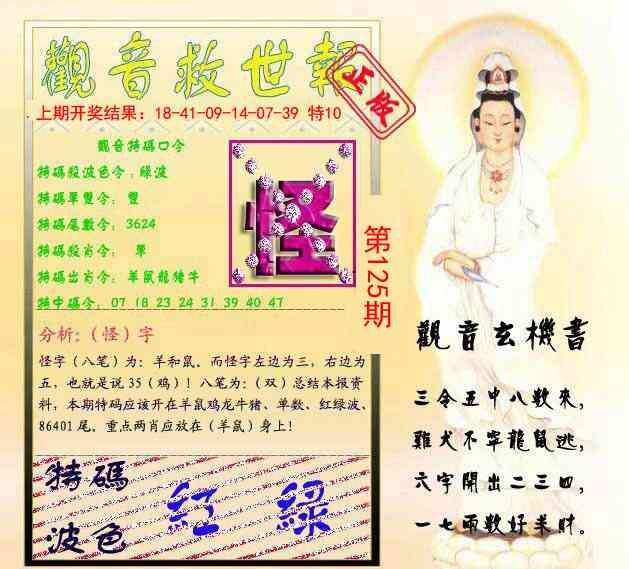 觀音救世報
正版
上期开奖结果：18-41-09-14-07-39 特10
觀音特碼口令
特碼段波色令：綠波
特碼單雙令：雙
特碼尾數令：3624
特碼段肖令： 單
特碼出肖令：羊鼠龍猪牛
特中碼令：07 18 23 24 31 39 40 47
怪
第125期
分析：（怪）字
怪字（八笔）为：羊和鼠。而怪字左边为三，右边为
五，也就是说 35（鸡）！八笔为：（双）总结本报资
料，本期特码应该开在羊鼠鸡龙牛猪、单数、红绿波、
86401 尾。重点两肖应放在（羊鼠）身上！
特碼
波色
紅 綠
觀音玄機書
三令五中八數來，
雞犬不寧龍鼠逃，
六字開出二三四，
一七兩數好羊財。